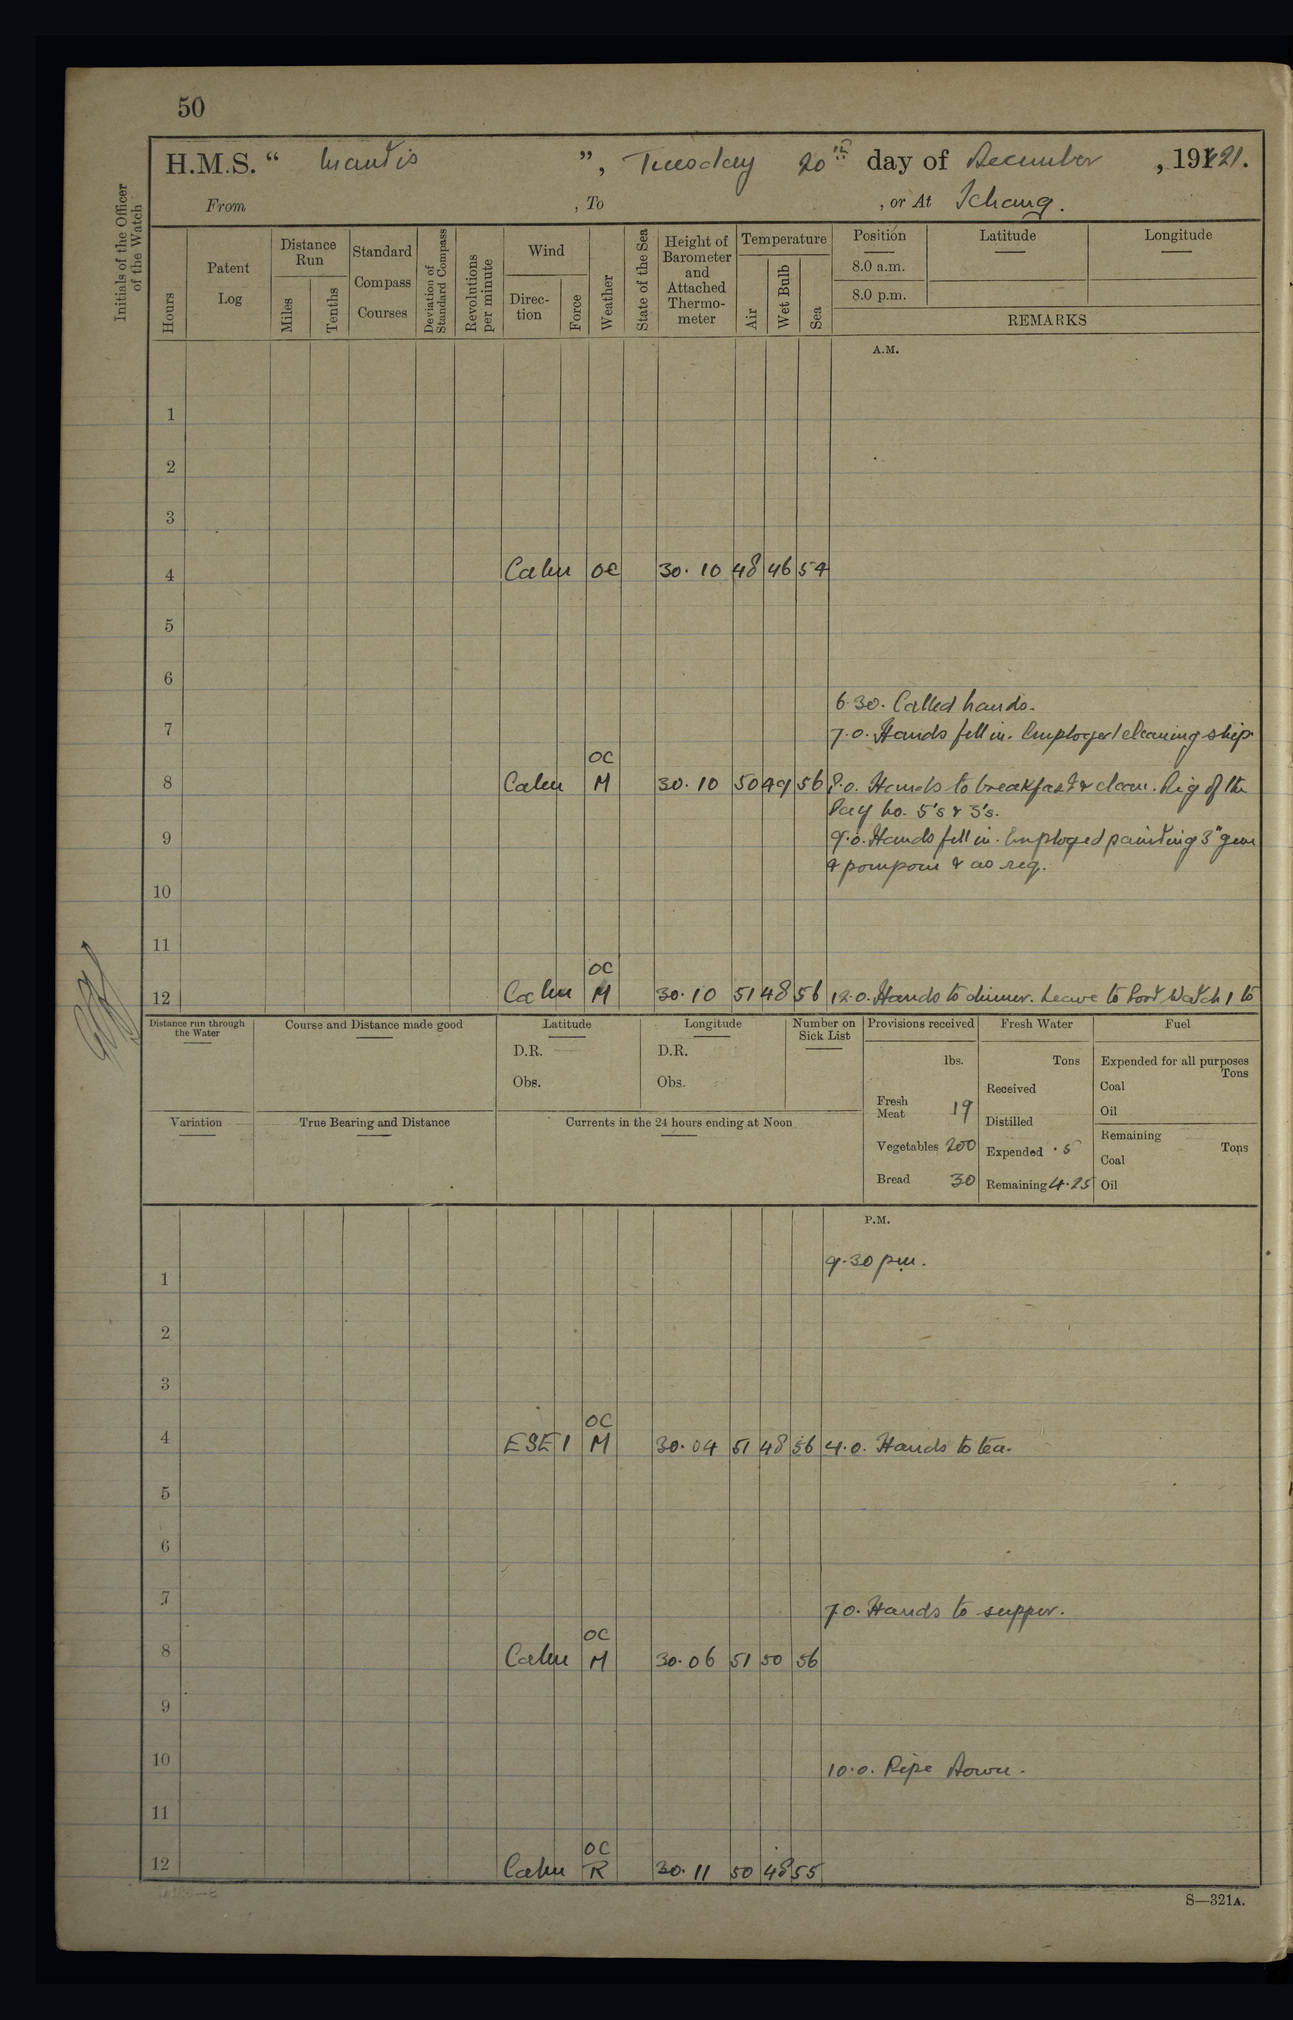 50
H.M.S. “ Mantis ”, Tuesday 20th day of December , 1921.
From , To , or At Ichang.
Initials of the Officer of the Watch
Hours
Patent Log
Distance Run
Miles
Tenths
Standard Compass Courses
Deviation of Standard Compass
Revolutions per minute
Wind
Direc-tion
Force
Weather
State of the Sea
Height of Barometer and Attached Thermo-meter
Temperature
Air
Wet Bulb
Sea
Position
8.0 a.m.
8.0 p.m.
Latitude
Longitude
REMARKS
A.M.
1
2
3
4 Calm oc 30.10 48 46 54
5
6
6.30. Called hands.
7 7.0. Hands fell in. Employed cleaning ship
oc
8 Calm M 30.10 50 49 56 8.0. Hands to breakfast & clean. Rig of the
Day No. 5's & 3's.
9 9.0. Hands fell in. Employed painting 3" gun
& pompom & as req.
10
11
oc
12 Calm M 30.10 51 48 56 12.0. Hands to dinner. Leave to Port Watch 1 to
Distance run through the Water
Course and Distance made good
Latitude
D.R.
Obs.
Longitude
D.R.
Obs.
Number on Sick List
Provisions received
lbs.
Fresh Meat 19
Vegetables 200
Bread 30
Fresh Water
Tons
Received
Distilled
Expended .5
Remaining 4.25
Fuel
Expended for all purposes
Tons
Coal
Oil
Remaining
Tons
Coal
Oil
Variation
True Bearing and Distance
Currents in the 24 hours ending at Noon
P.M.
9.30 pm.
1
2
3
oc
4 ESE 1 M 30.04 51 48 56 4.0. Hands to tea.
5
6
7 7.0. Hands to supper.
oc
8 Calm M 30.06 51 50 56
9
10 10.0. Pipe Down.
11
oc
12 Calm R 30.11 50 48 55
S—321A.